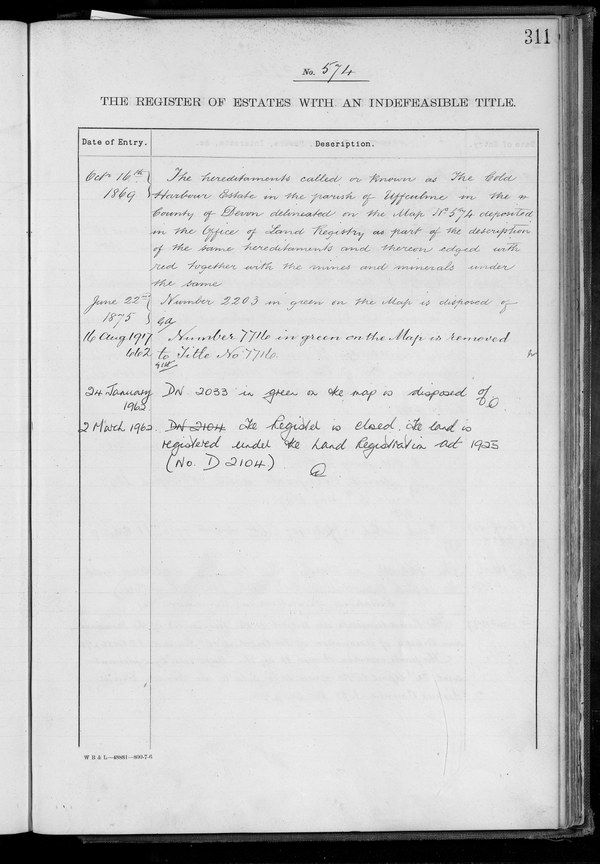 311
No. 574
THE REGISTER OF ESTATES WITH AN INDEFEASIBLE TITLE.
Date of Entry.
Description.
Octr 16th 1869
The hereditaments called or known as The Cold
Harbour Estate in the parish of Uffculme in the
County of Devon delineated on the Map No 574 deposited
in the Office of Land Registry as part of the description
of the same hereditaments and thereon edged with
red together with the mines and minerals under
the same
June 22nd 1875
Number 2203 in green on the Map is disposed of
16 Aug 1917
Number 7716 in green on the Map is removed
to Title No 7716.
24 January 1962
DN 2033 in green on the map is disposed of
2 March 1962
DN 2104 The Register is closed. The land is
registered under the Land Registration Act 1925
(No. D 2104)
W B & L